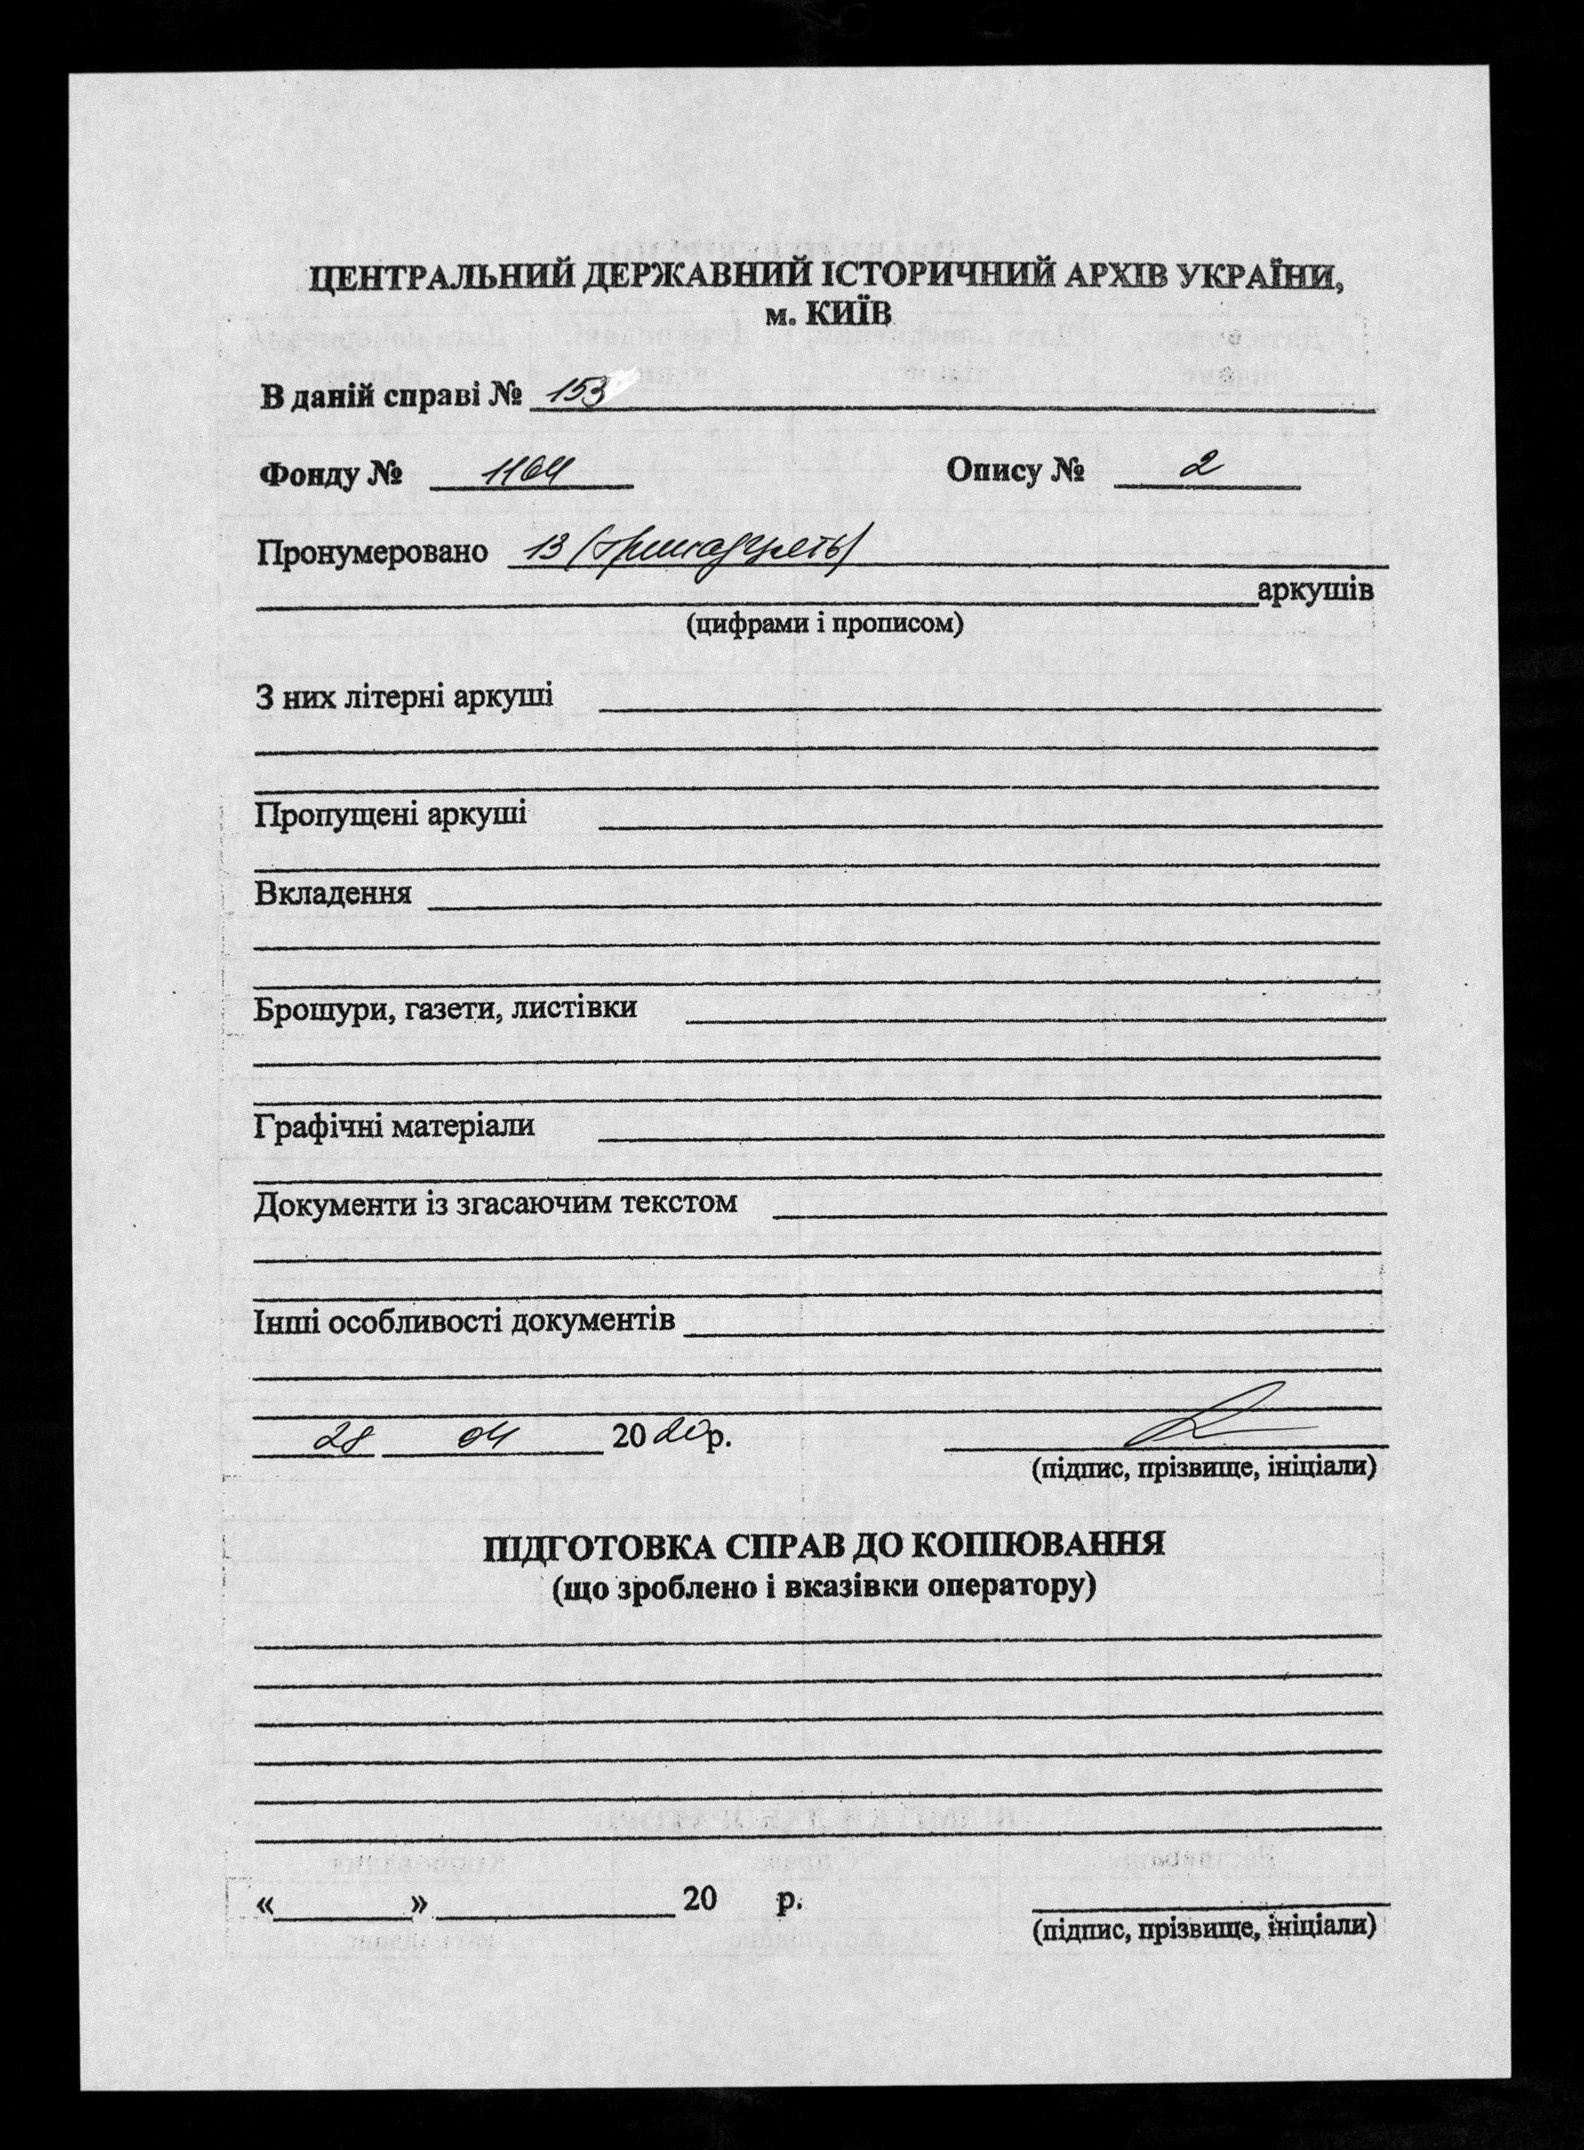 ЦЕНТРАЛЬНИЙ ДЕРЖАВНИЙ ІСТОРИЧНИЙ АРХІВ УКРАЇНИ,
м. КИЇВ
В даній справі № 153
Фонду № 1164 Опису № 2
Пронумеровано 13 (тринадцять)
аркушів
(цифрами і прописом)
З них літерні аркуші
Пропущені аркуші
Вкладення
Брошури, газети, листівки
Графічні матеріали
Документи із згасаючим текстом
Інші особливості документів
28 04 2020 р.
(підпис, прізвище, ініціали)
ПІДГОТОВКА СПРАВ ДО КОПІЮВАННЯ
(що зроблено і вказівки оператору)
«________» ____________ 20 р.
(підпис, прізвище, ініціали)